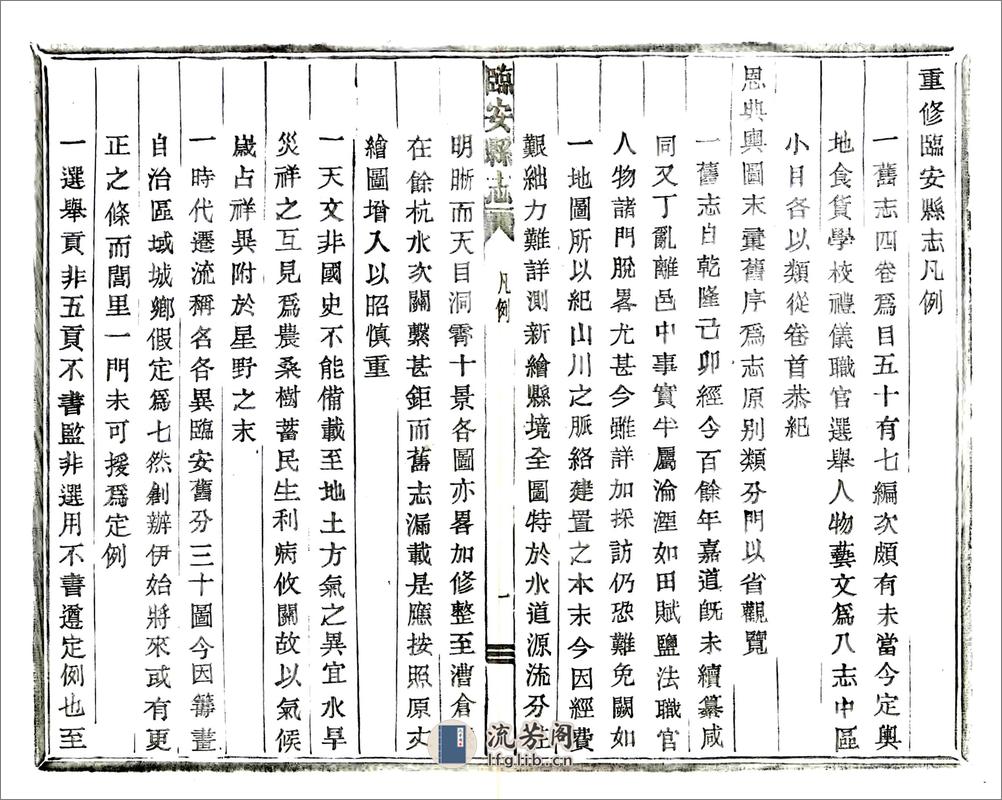 重修臨安縣志凡例
一舊志四卷爲目五十有七編次頗有未當今定輿
地食貨學校禮儀職官選舉人物藝文爲八志中區
小目各以類從卷首恭紀
恩典輿圖末彙舊序爲志原別類分門以省觀覽
一舊志自乾隆己卯經今百餘年嘉道旣未續纂咸
同又丁亂離邑中事實半屬淪湮如田賦鹽法職官
人物諸門脫畧尤甚今雖詳加採訪仍恐難免闕如
一地圖所以紀山川之脈絡建置之本末今因經費
艱絀力難詳測新繪縣境全圖特於水道源流分
臨安縣志
凡例
一
明晰而天目洞霄十景各圖亦畧加修整至漕倉
在餘杭水次關繫甚鉅而舊志漏載是應按照原丈
繪圖增入以昭慎重
一天文非國史不能備載至地土方氣之異宜水旱
災祥之互見爲農桑樹蓄民生利病攸關故以氣候
歲占祥異附於星野之末
一時代遷流稱名各異臨安舊分三十圖今因籌畫
自治區域城鄉假定爲七然創辦伊始將來或有更
正之條而閭里一門未可援爲定例
一選舉貢非五貢不書監非選用不書遵定例也至
流芳阁
lfglib.cn